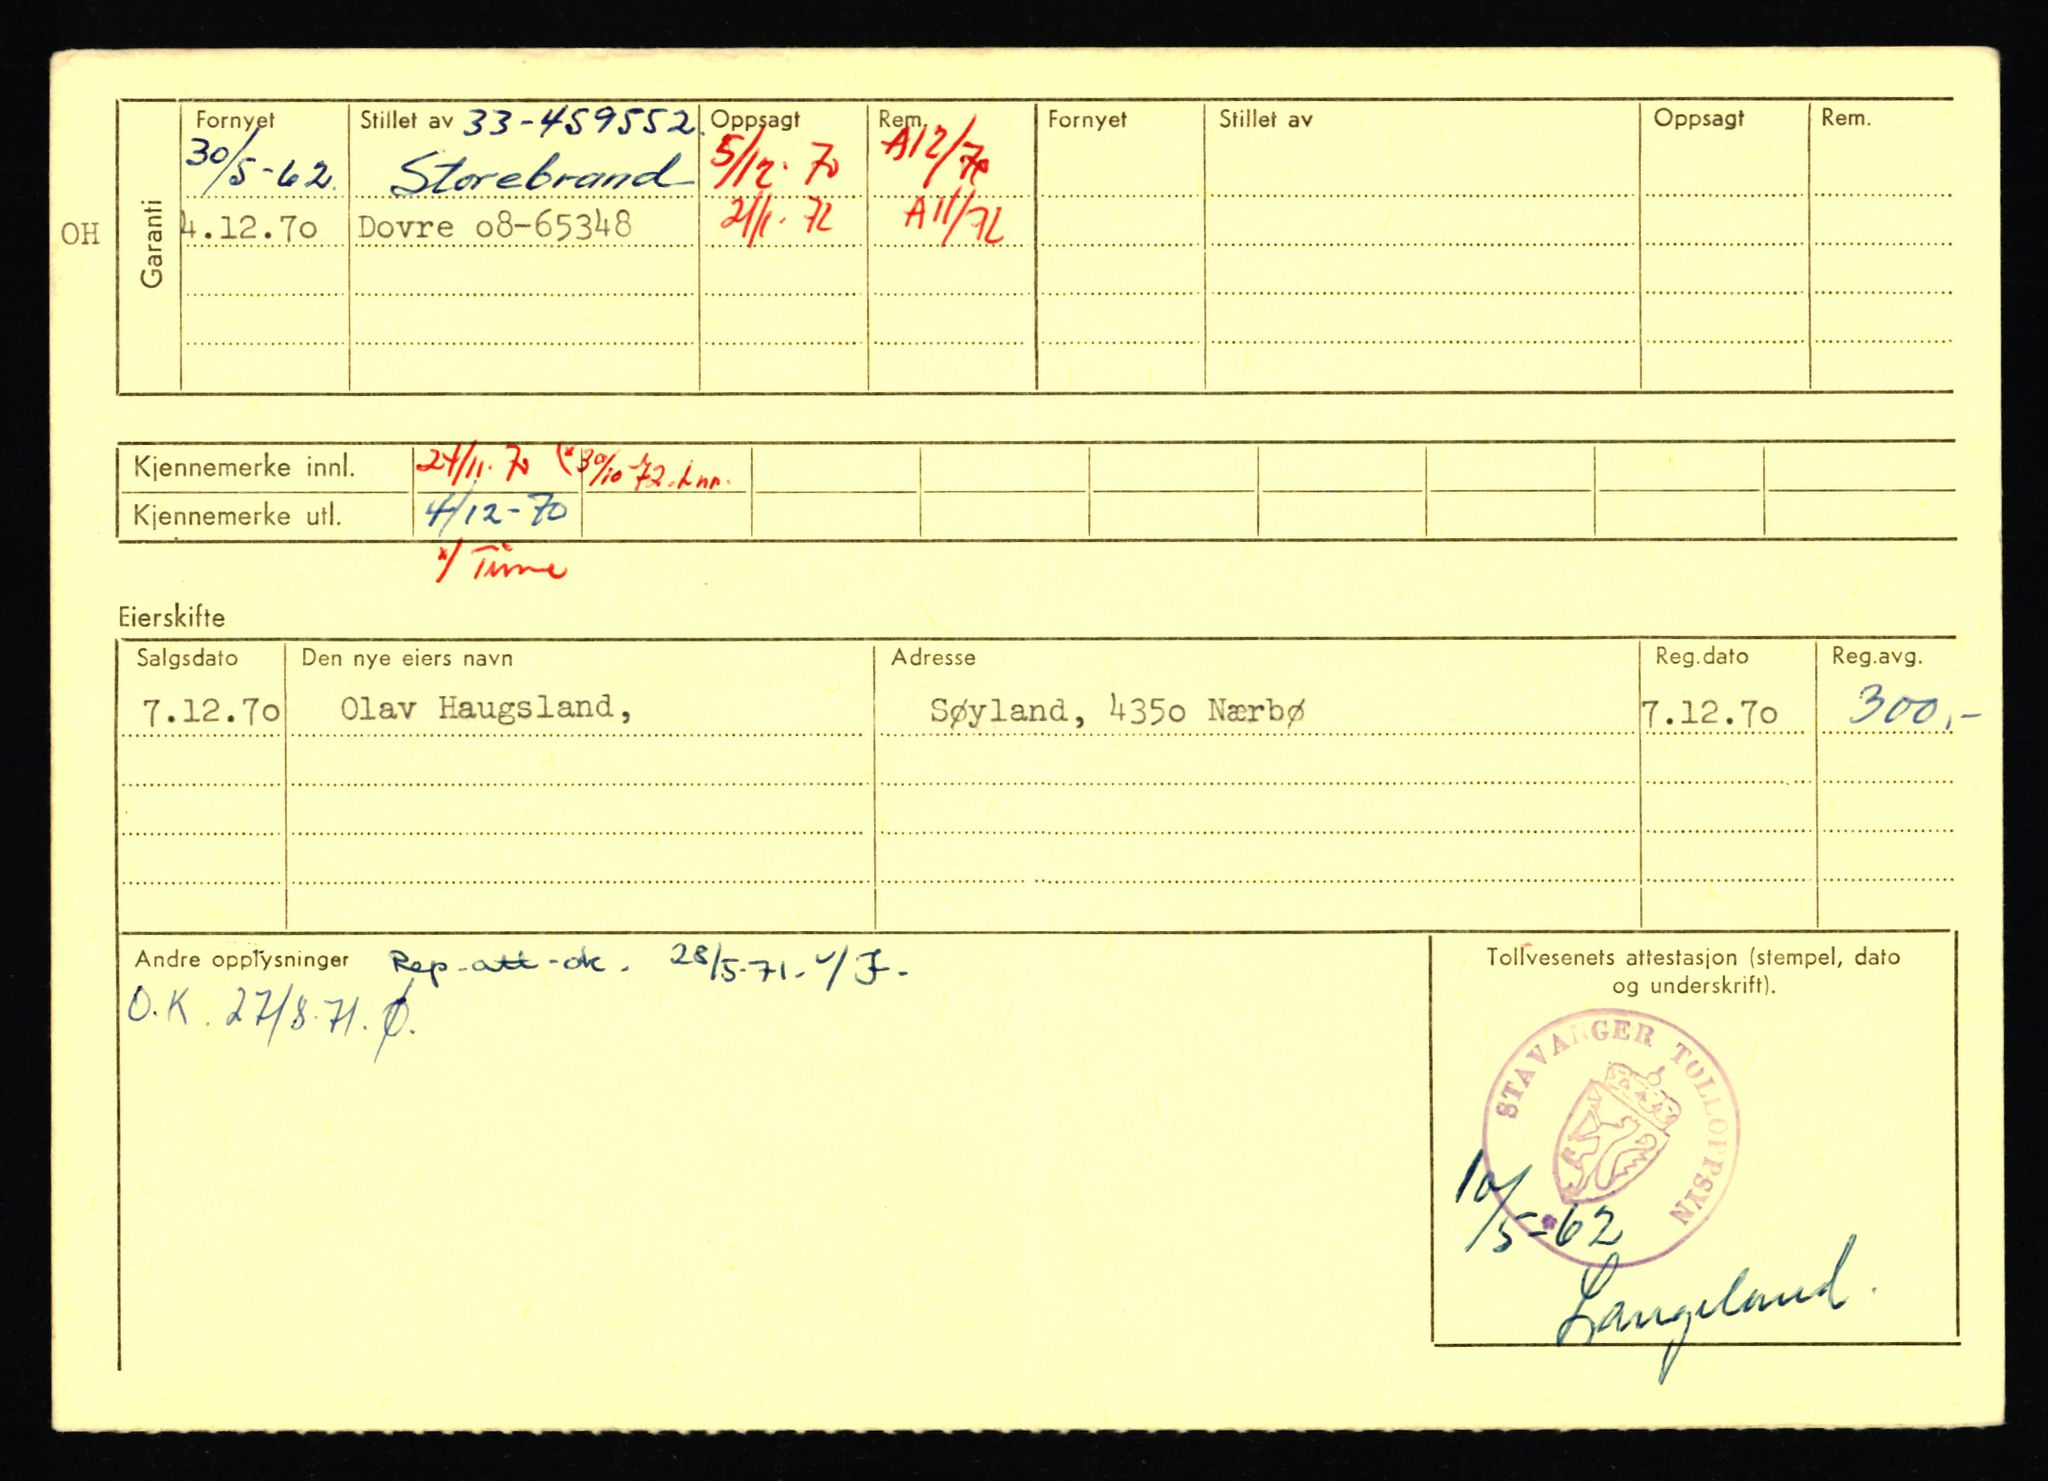 Fornyet Stillet av 33-459552. Oppsagt Rem. Fornyet Stillet av Oppsagt Rem.
30/5-62. Storebrand 5/12. 70 A12/70
OH 4.12.70 Dovre 08-65348 21/1. 72 A11/72
Garanti
Kjennemerke innl. 24/11. 70 (* 30/10-72. Lnn.
Kjennemerke utl. 4/12-70
*/ Time
Eierskifte
Salgsdato Den nye eiers navn Adresse Reg.dato Reg.avg.
7.12.70 Olav Haugsland, Søyland, 4350 Nærbø 7.12.70 300,-
Andre opplysninger Rep-att-ok. 28/5-71. Tollvesenets attestasjon (stempel, dato
og underskrift).
O.K. 27/8.71. Ø.
STAVANGER TOLLOPPSYN
10/5-62
Langeland.